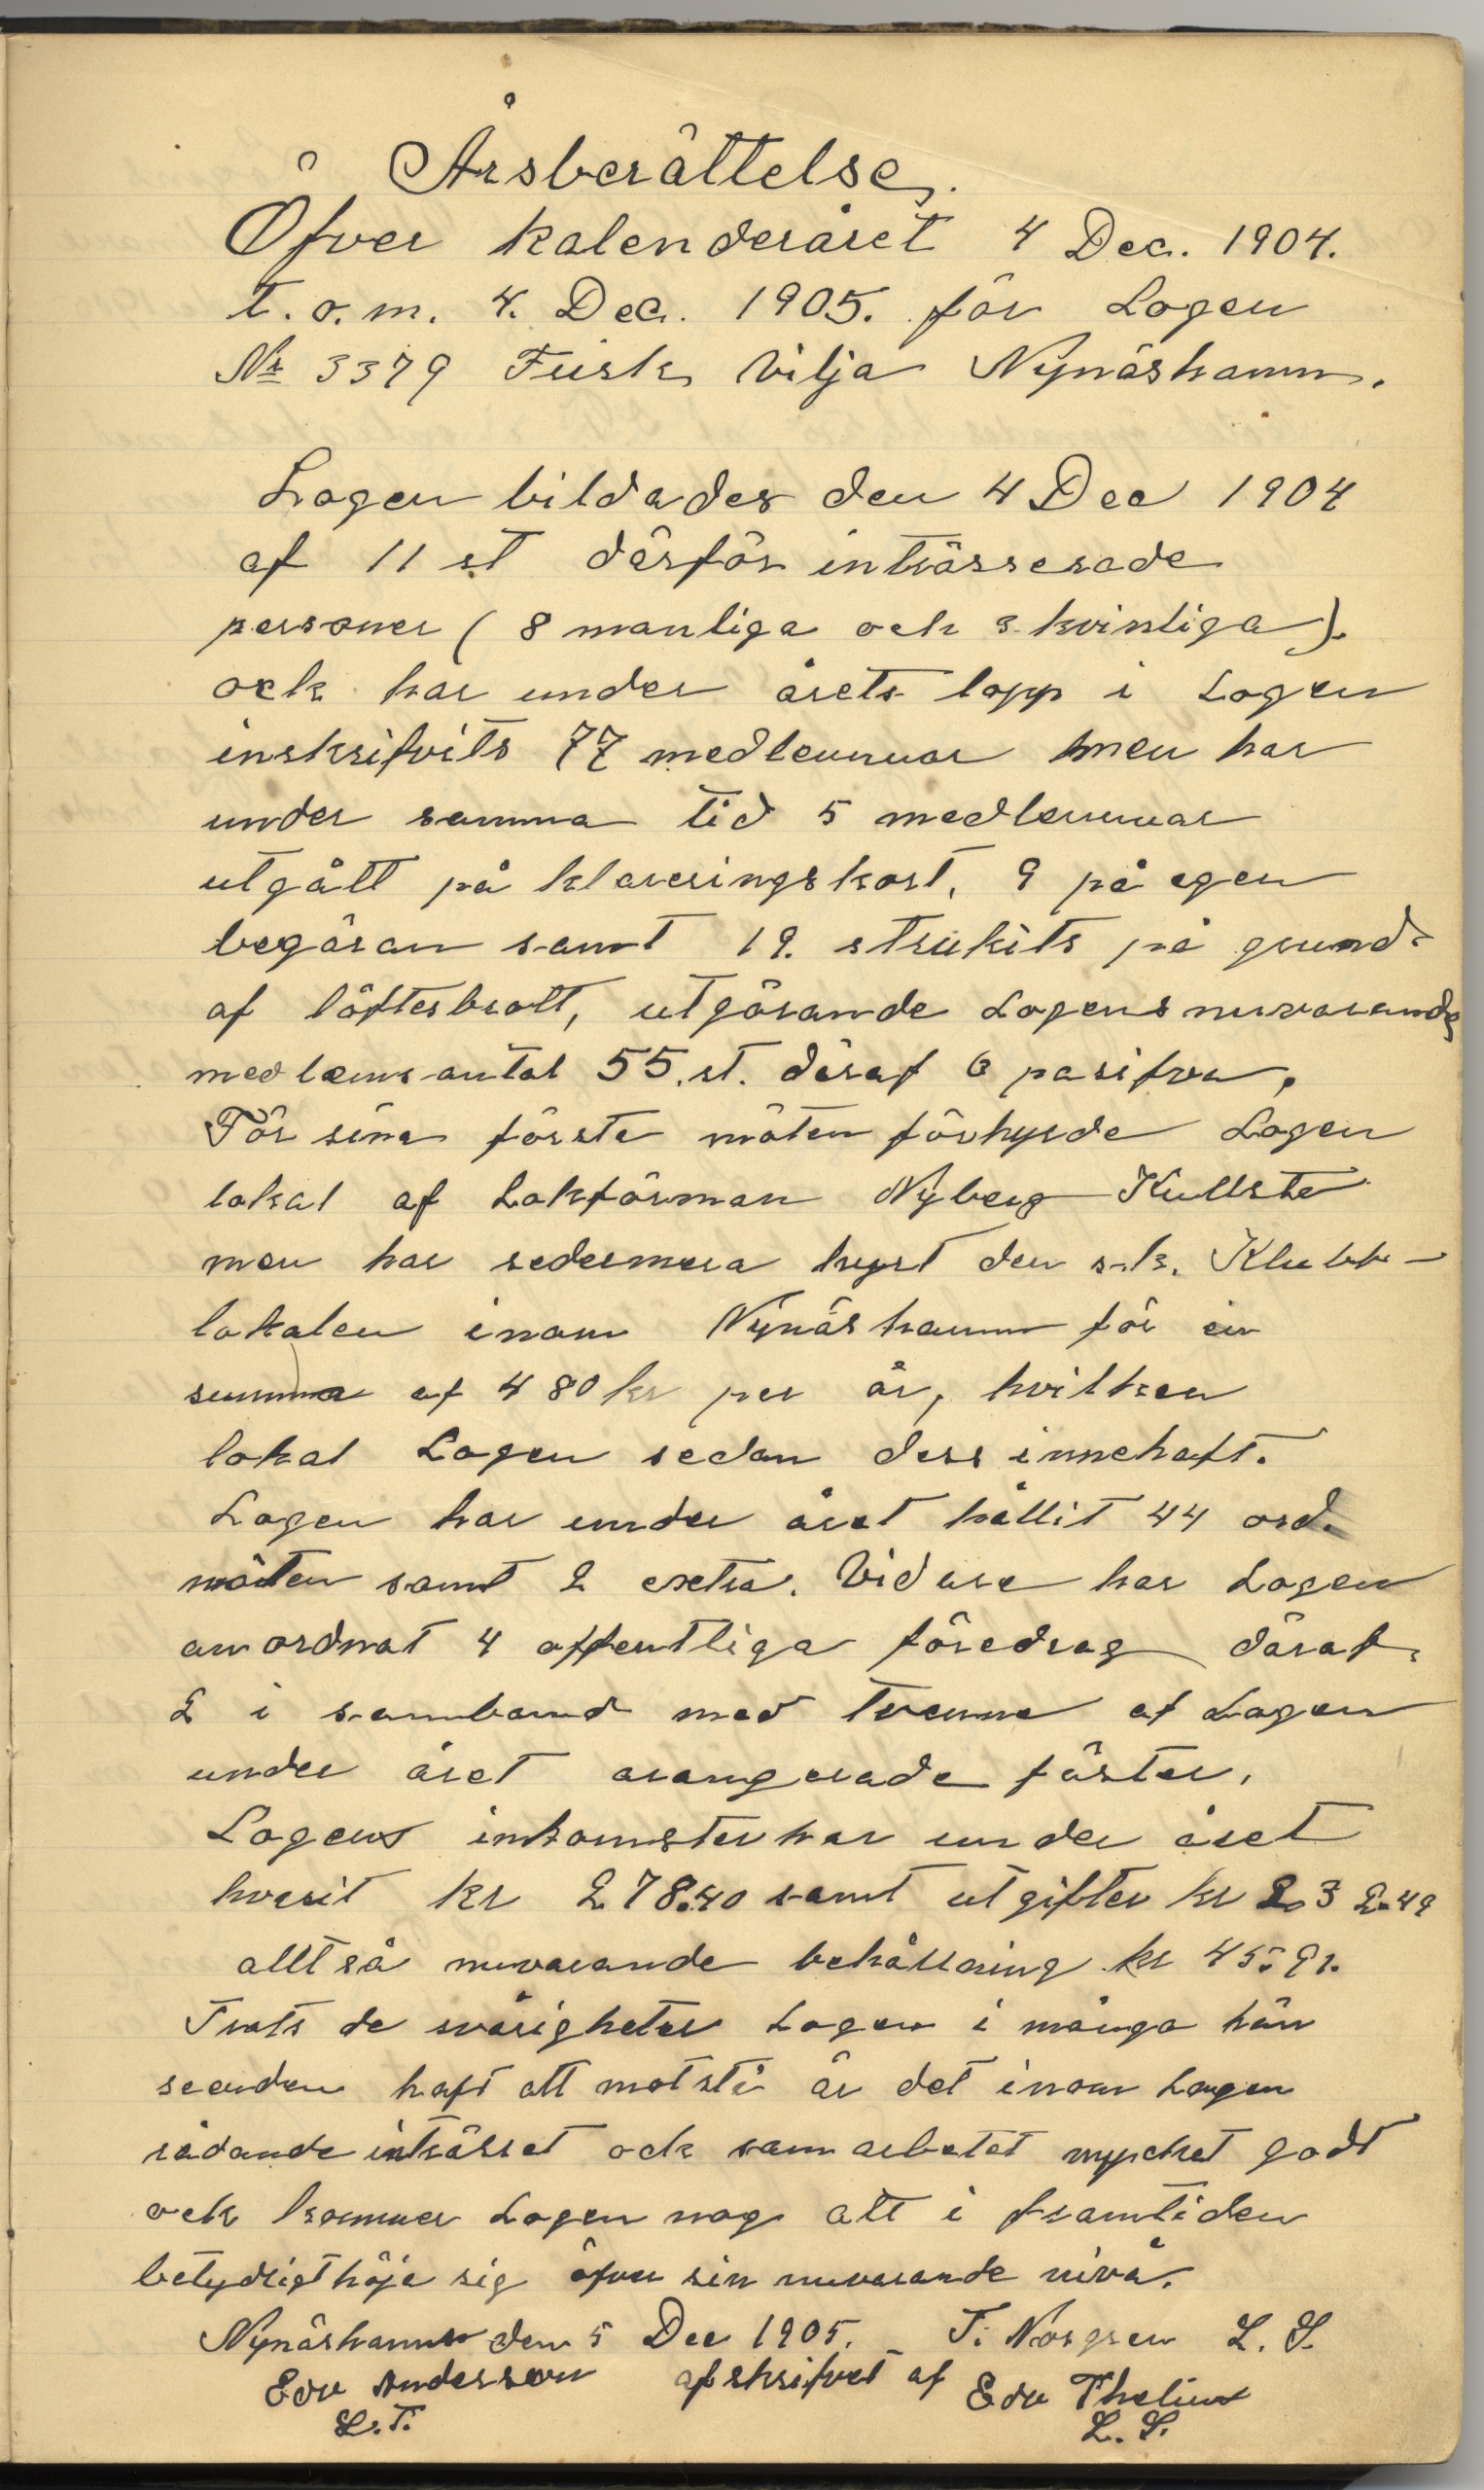 Årsberättelse.
Öfver kalenderåret 4 Dec. 1904.
t. o. m. 4. Dec. 1905. för Logen
No 3379 Frisk Vilja Nynäshamn.
Logen bildades den 4 Dec 1904
af 11 st därför inträsserade
personer (8 manliga och 3 kvinliga).
ock har under årets lopp i Logen
inskrifvits 77 medlemmar men har
under samma tid 5 medlemmar
utgått på klareringskort, 9 på egen
begäran samt 19. strukits på grund
af löftesbrott, utgörande Logens nuvarande
medlemsantal 55. st. däraf 6 pasifva,
För sina första möten förhyrde Logen
lokal af Lokförman Nyberg Kullsta
men har sedermera hyrt den s.k. Klubb-
lokalen inom Nynäshamn för en
summa af 480 kr per år, hvilken
lokal Logen sedan dess innehaft.
Logen har under året hållit 44 ord.
möten samt 2 extra. Vidare har Logen
anordnat 4 offentliga föredrag däraf
2 i samband med tvenne af Logen
under året arangerade fäster.
Logens inkomster har under året
hvarit kr 278.40 samt utgifter kr 232.49
alltså nuvarande behållning kr 45:91.
Trots de svårigheter Logen i många hän
seenden haft att motstå är det inom Logen
rådande inträsset ock samarbetet mycket godt
ock kommer Logen nog att i framtiden
betydligt höja sig öfver sin nuvarande nivå.
Nynäshamn den 5 Dec 1905. T. Norgren L. S.
Edv Andersson afskrifvet af Edv Thelin
L. T. L. S.